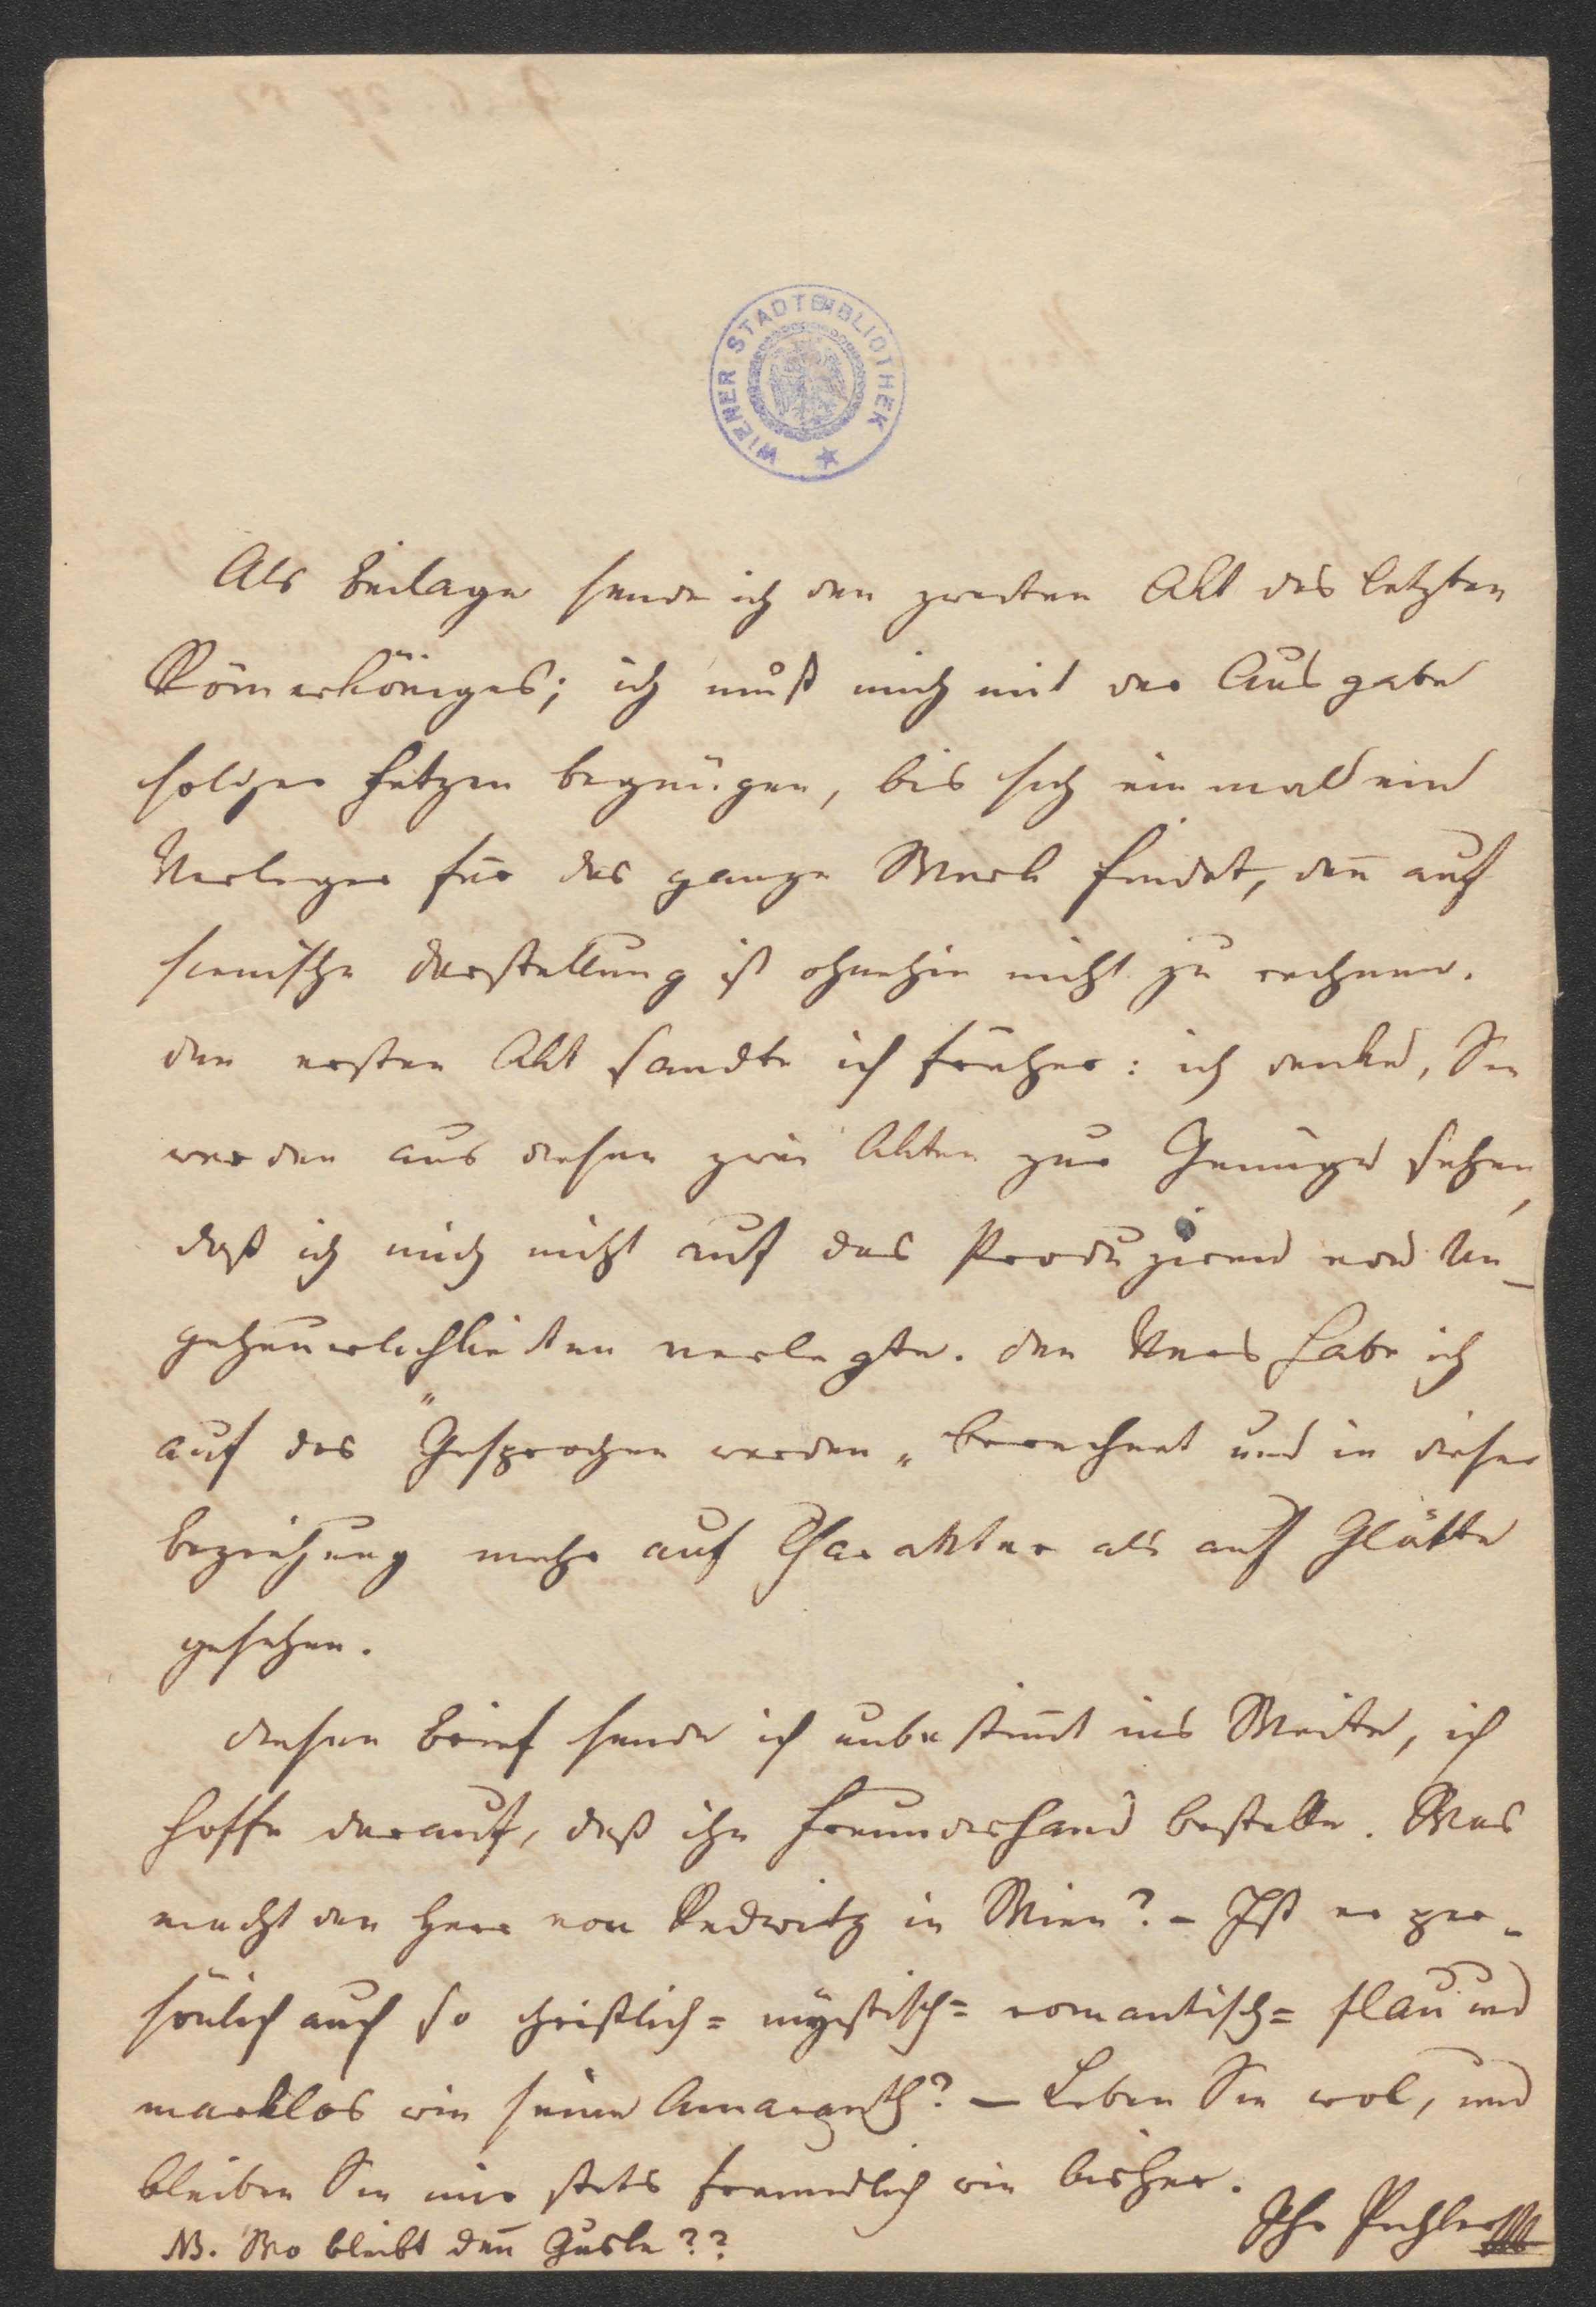 WIENER STADTBIBLIOTHEK
Als Beilage sende ich den zweiten Akt des letzten
Römerköniges; ich muß mich mit der Ausgabe
solcher Fetzen begnügen, bis sich einmal ein
Verleger für das ganze Werk findet, den̄ auf
scenische Darstellung ist ohnehin nicht zu rechnen.
Den ersten Akt sandte ich früher: ich denke, Sie
werden aus diesen zwei Akten zur Genüge sehen,
daß ich mich nicht auf das Produziren von Un-
geheuerlichkeiten verlegte. Den Vers habe ich
auf das "Gesprochen werden" berechnet und in dieser
Beziehung mehr auf Charakter als auf Glätte
gesehen.
Diesen Brief sende ich unbestim̄t ins Weite, ich
hoffe darauf, daß ihn Freundeshand bestelle. Was
macht den Herr von Redwitz in Wien? – Ist er per-
sönlich auch so christlich= mystisch= romantisch= flau und
marklos wie seine Amaranth? – Leben Sie wol, und
bleiben Sie mir stets freundlich wie bisher.
Ihr Pichler
NB. Wo bleibt den̄ Gusle??